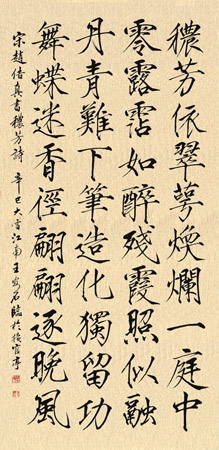 穠芳依翠萼煥爛一庭中
零露霑如醉殘霞照似融
丹青難下筆造化獨留功
舞蝶迷香徑翩翩逐晚風
宋趙佶真書穠芳詩 辛巳大雪江南王石臨於亭